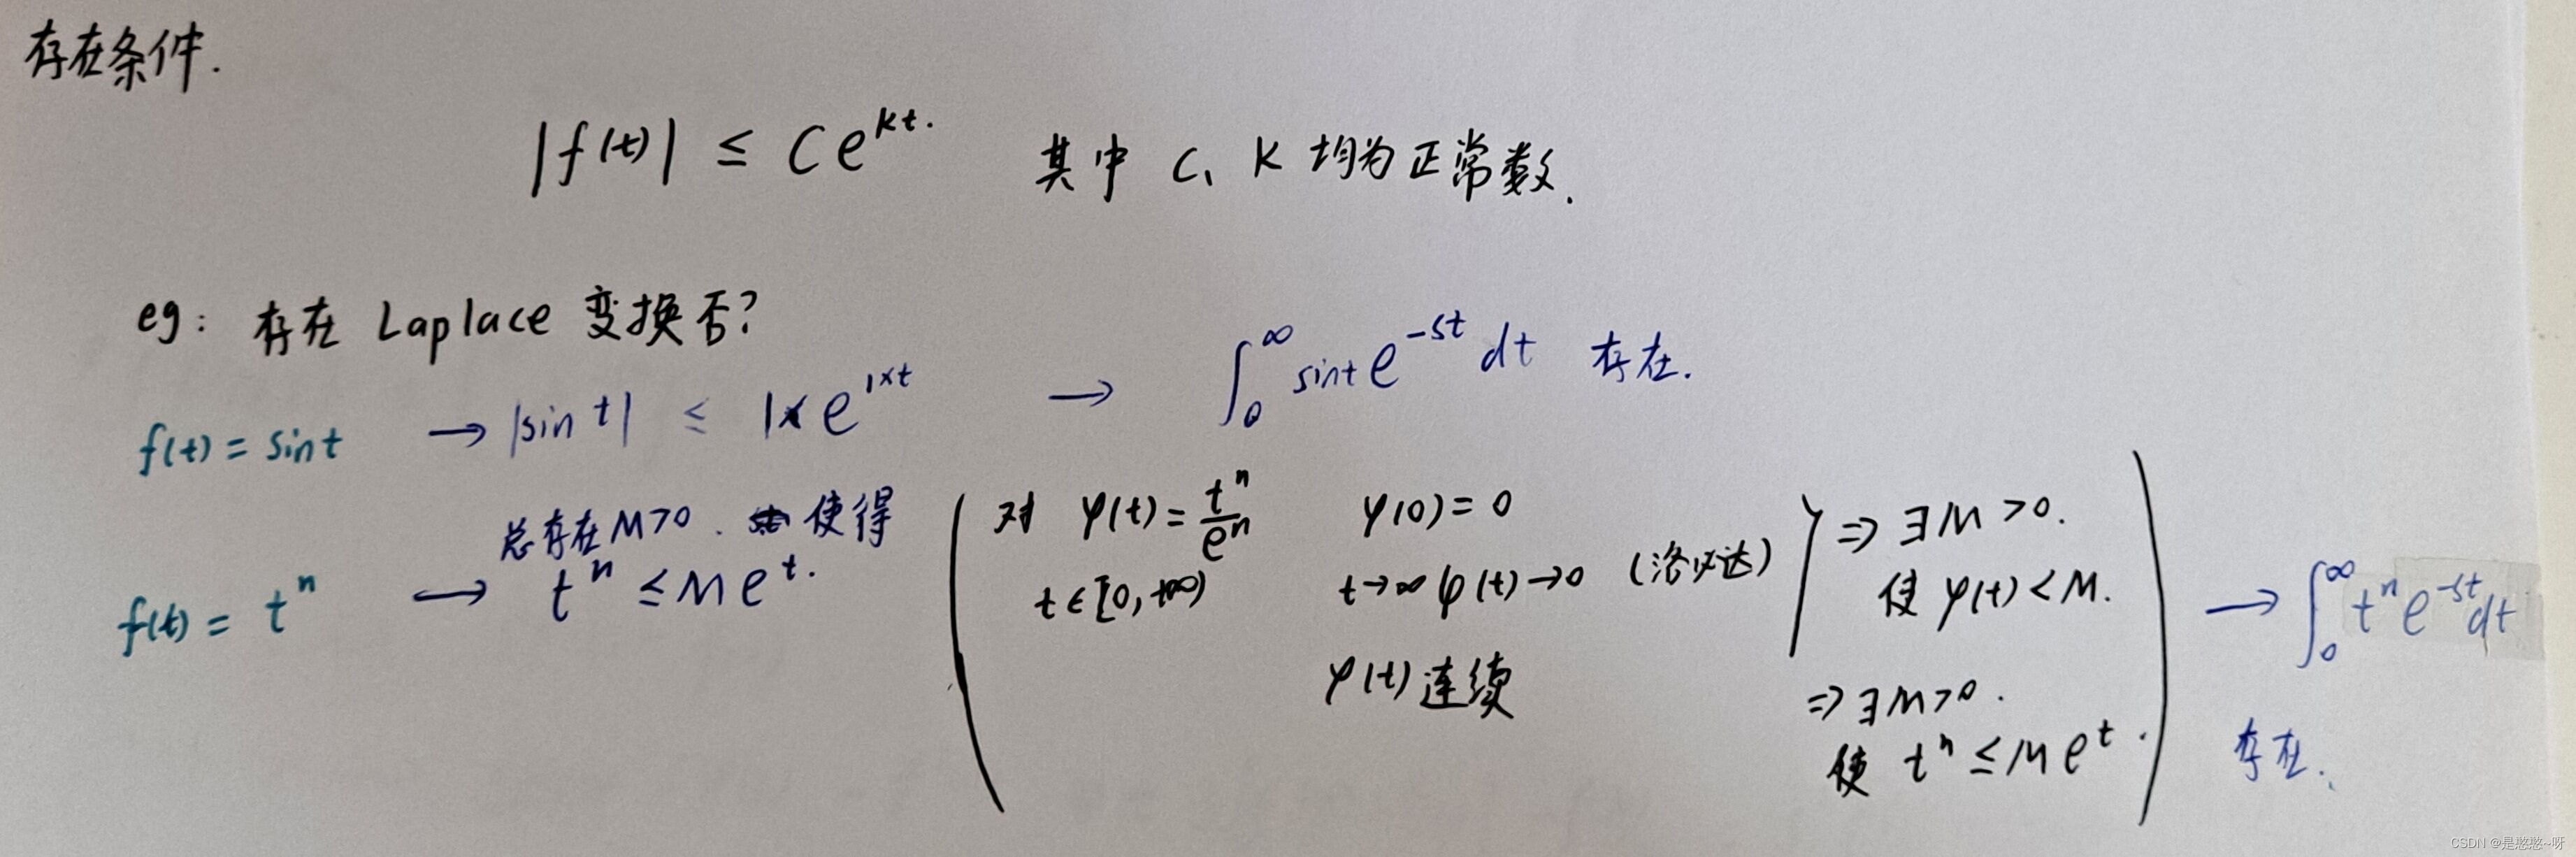 存在条件.
|f(t)| ≤ Ce^{kt}. 其中 C、K 均为正常数.
eg: 存在 Laplace 变换否?
f(t) = sint → |sin t| ≤ 1×e^{1×t} → ∫_0^∞ sint e^{-st} dt 存在.
f(t) = t^n → 总存在M>0. 使得
t^n ≤ Me^t.
对 φ(t) = \frac{t^n}{e^n} φ(0) = 0
t∈[0,+∞) t→∞ φ(t)→0 (洛必达)
φ(t) 连续
⇒ ∃M>0.
使 φ(t)<M.
⇒ ∃M>0.
使 t^n ≤ Me^t.
→ ∫_0^∞ t^n e^{-st} dt
存在.
CSDN @是憨憨~呀